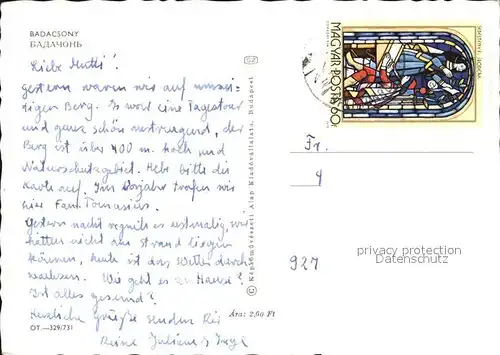 BADACSONY
БАДАЧОНЬ
Liebe Mutti!
gestern waren wir auf unwsi-
digen Berg. Es war eine Tagestour
und ganz schön anstrengend, der
Berg ist über 400 m hoch und
Naturschutzgebiet. Hebe bitte die
Karte auf. Im Vorjahr trafen wir
hier Fam. Tomasius.
Gestern nacht regnete es erstmalig, wir
hätten nicht am Strand liegen
können, heute ist das Wetter durch-
wachsen. Wie geht es zu Hause?
Ist alles gesund?
Herzliche Grüße senden Dir
Deine Juliane &
OT.—329/731
Ára: 2,60 Ft
© Képzőművészeti Alap Kiadóvállalata, Budapest
MAGYAR POSTA 60f
Fr.
9
927
privacy protection
Datenschutz